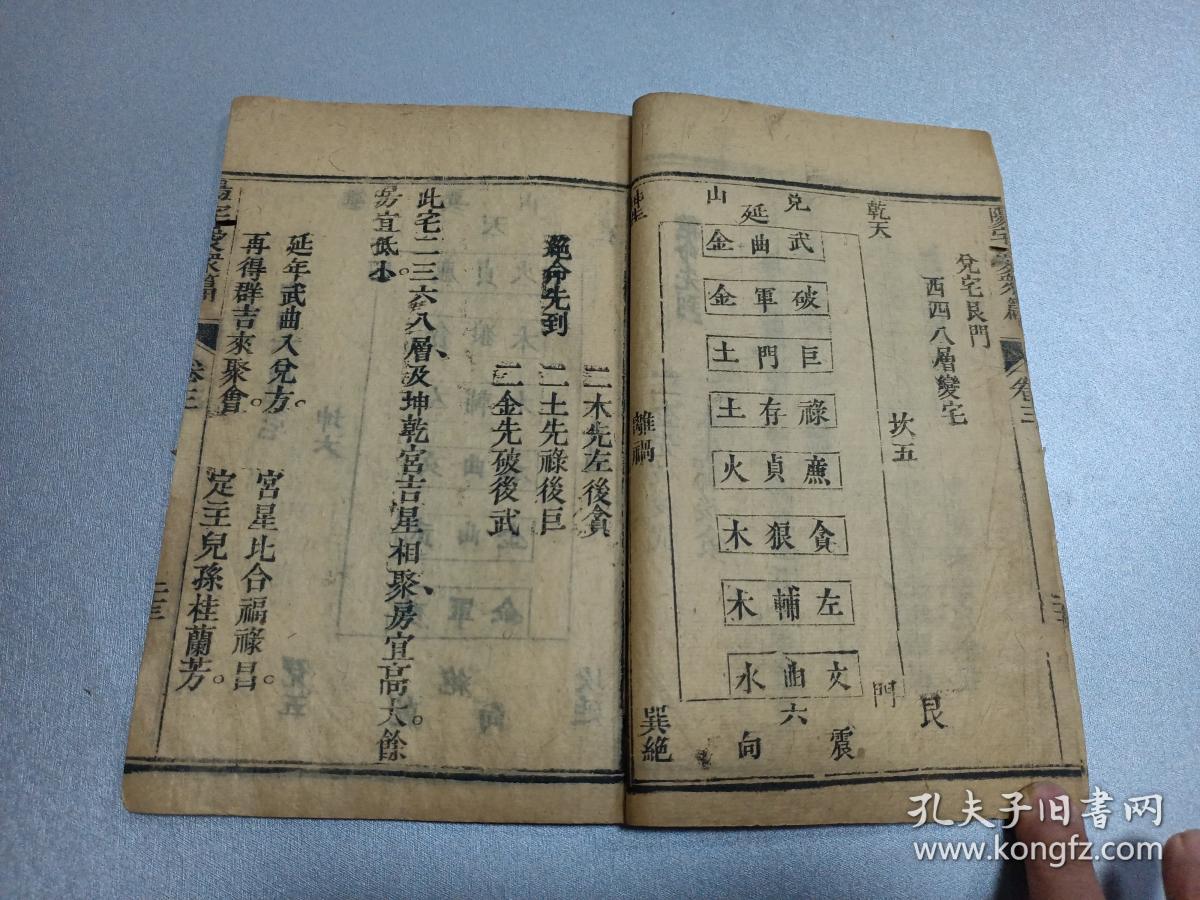 兌宅艮門
西四八層變宅
乾天
坎五
艮
門
兌
山
延
武曲金
破軍金
巨門土
祿存土
廉貞火
貪狼木
左輔木
文曲水
六
震
向
離禍
巽絶
卷三
絕命先到
二木先左後貪
二土先祿後巨
二金先破後武
此宅二三六八層及坤乾宮吉星相聚房宜高大。餘
房宜低小
延年武曲入兌方。 宮星比合福祿昌。
再得群吉來聚會。 定主兒孫桂蘭芳。
卷三
孔夫子旧书网
www.kongfz.com